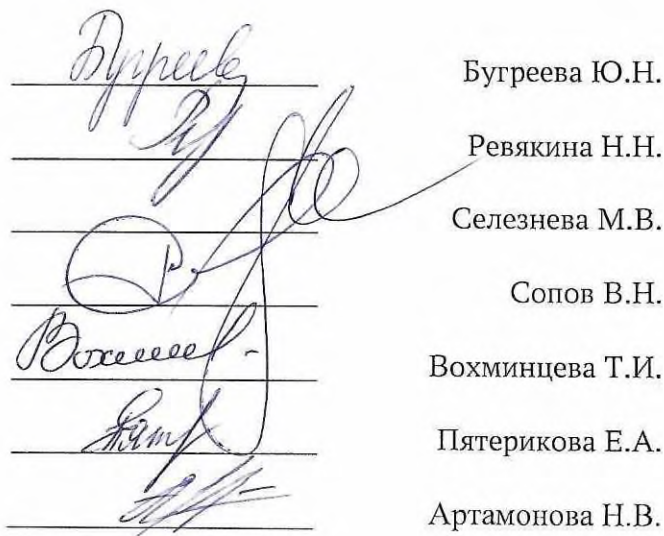 Бугреева Ю.Н.
Ревякина Н.Н.
Селезнева М.В.
Сопов В.Н.
Вохминцева Т.И.
Пятерикова Е.А.
Артамонова Н.В.